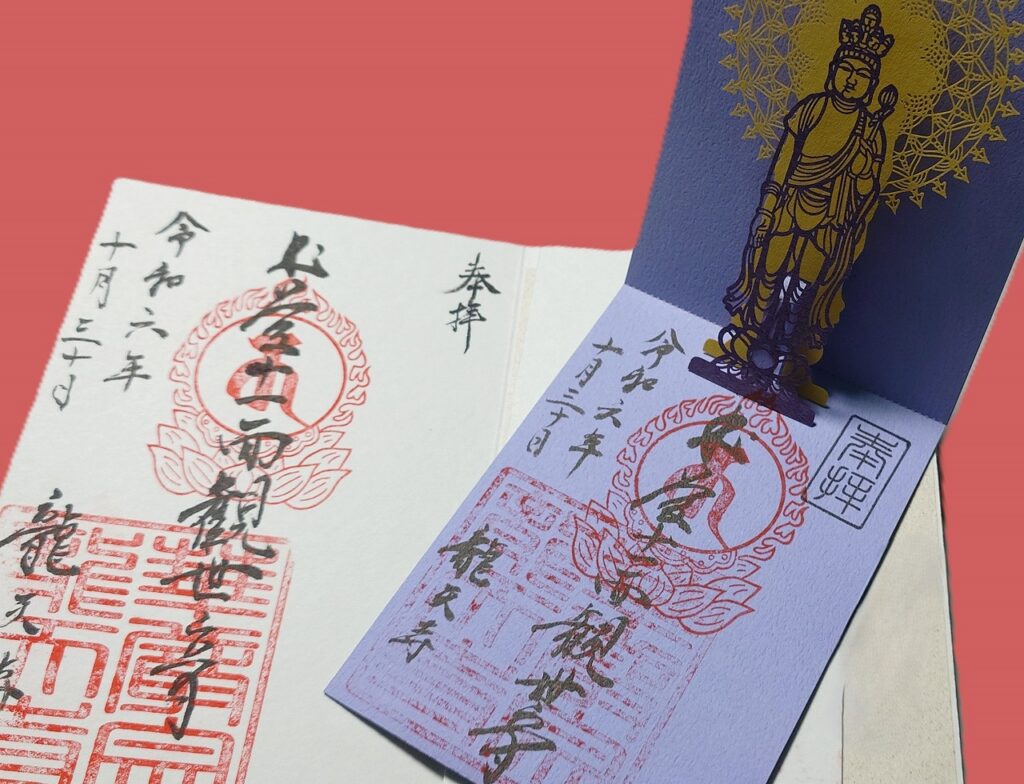 奉拝
堂十一面観世音
令和六年
十月三十日
龍天寺
奉拝
堂十一面観世音
令和六年
十月三十日
龍天寺